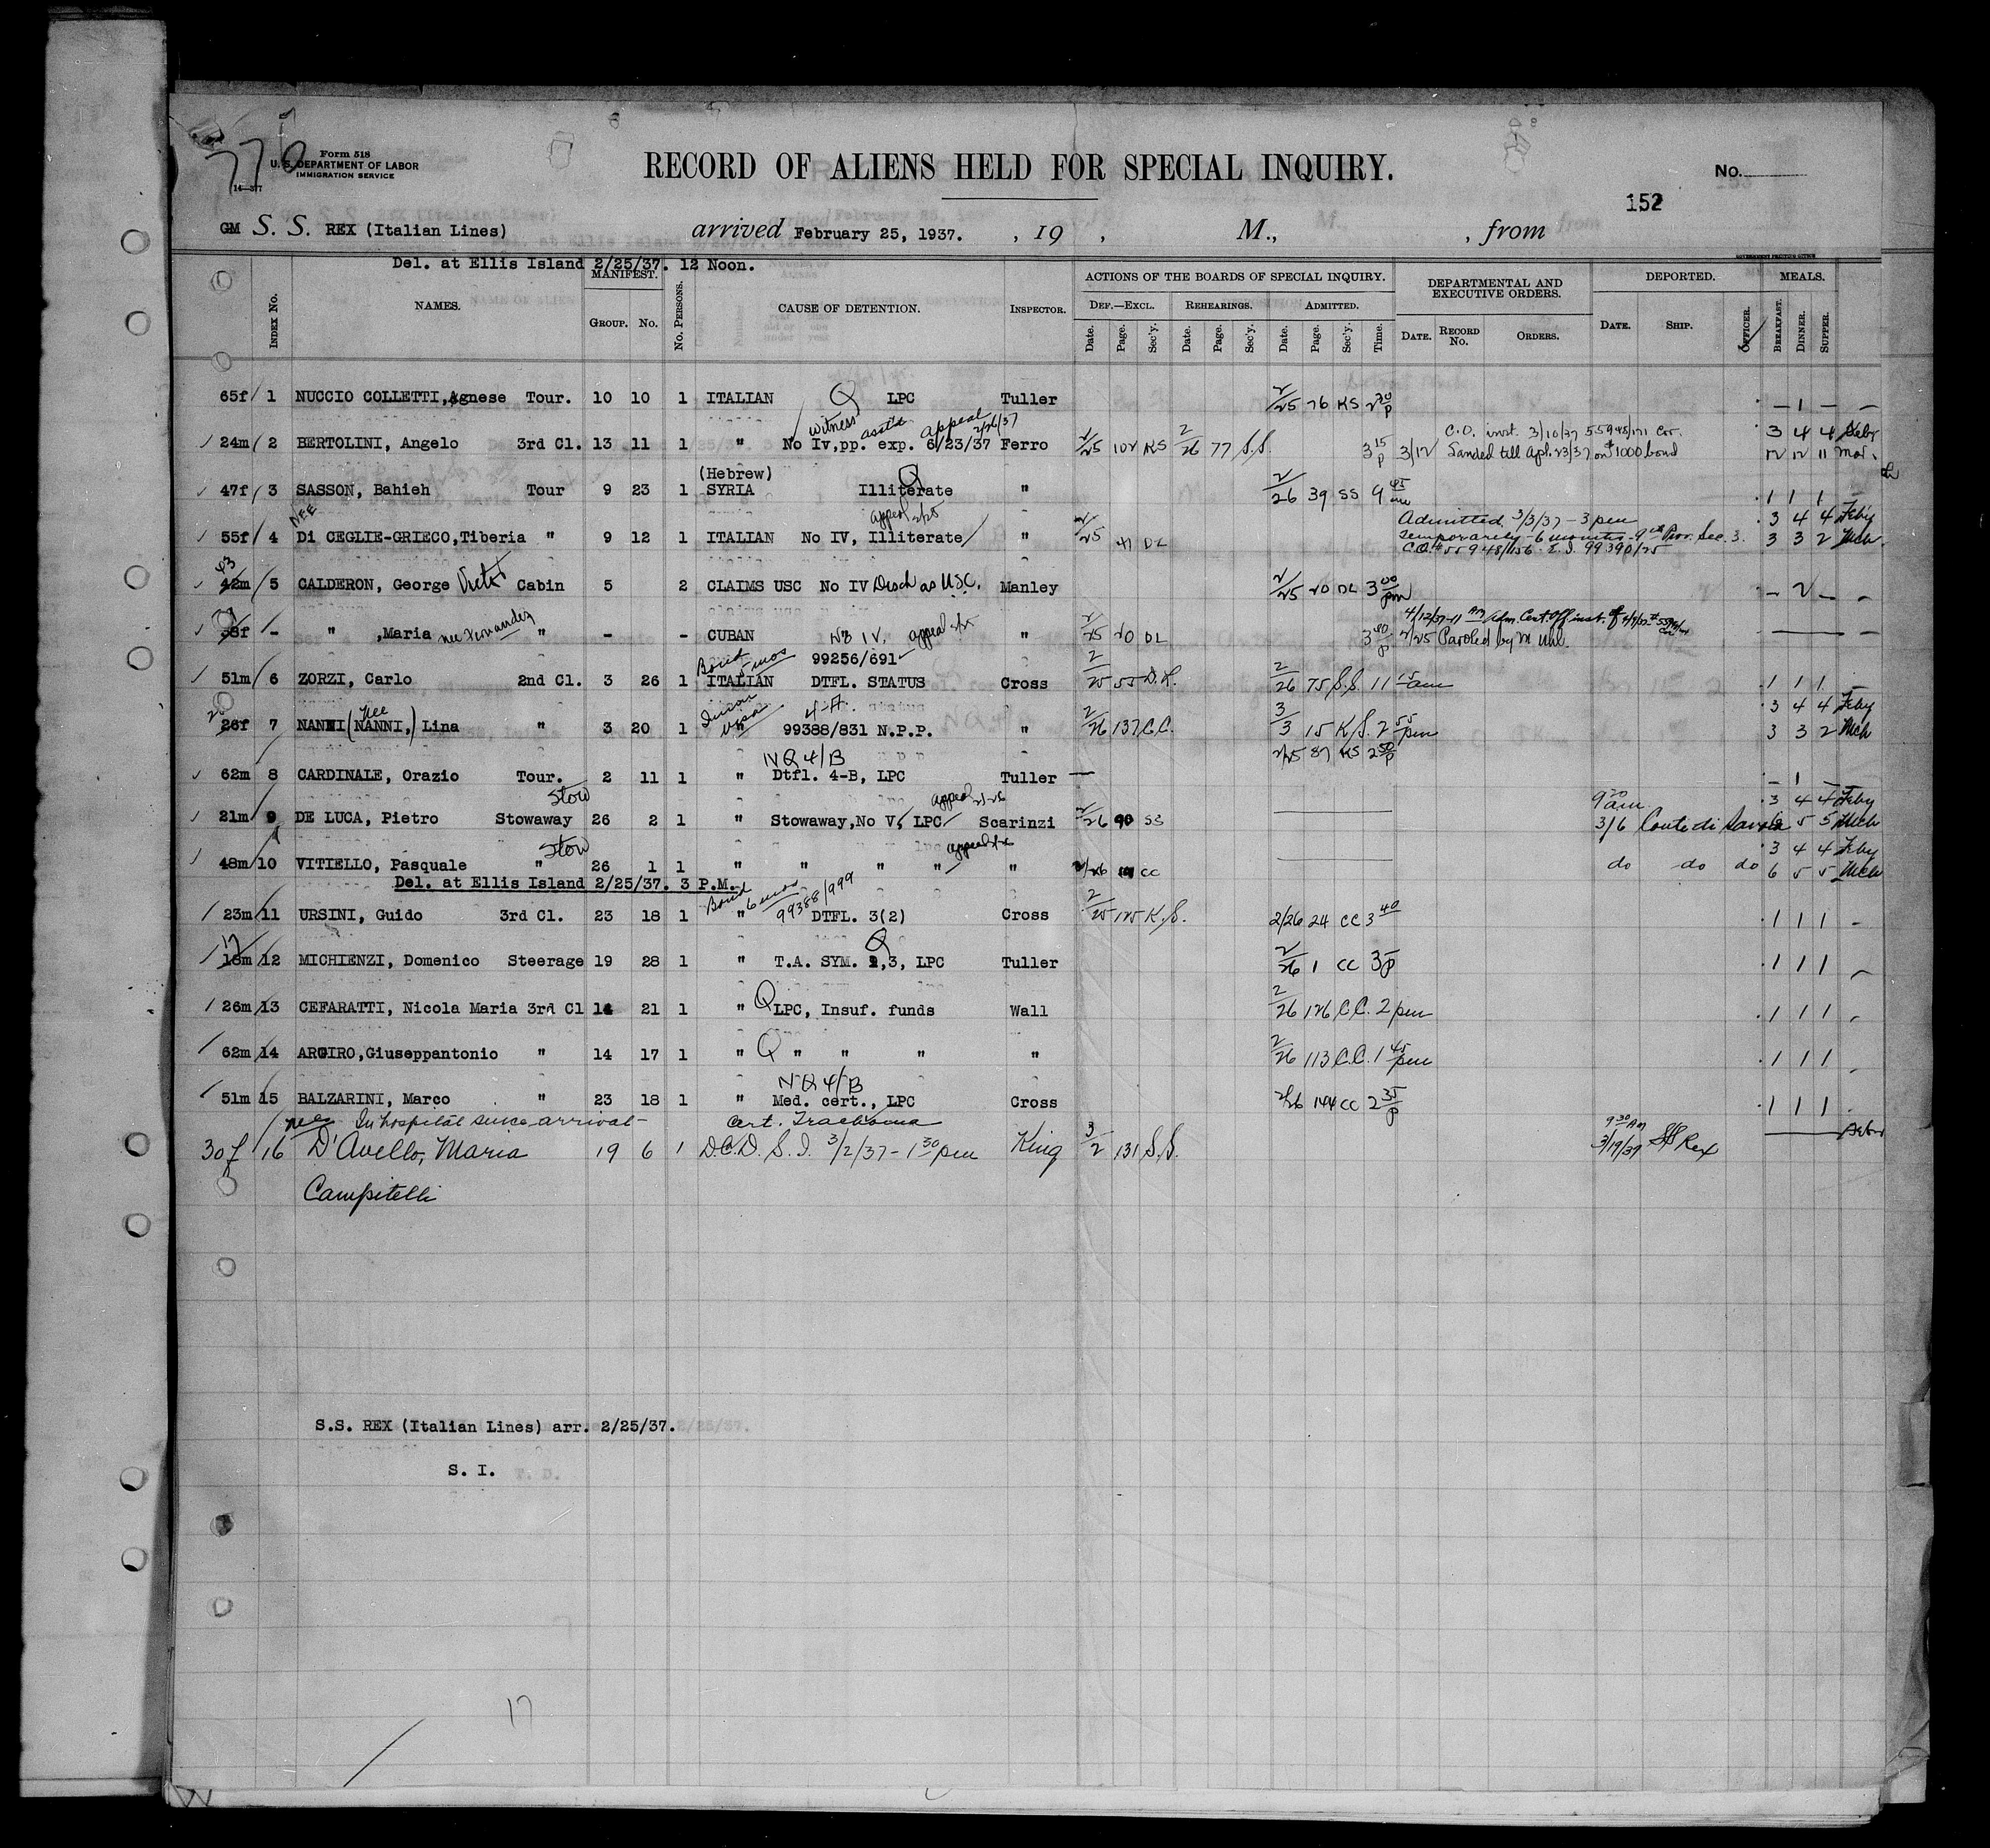 776
Form 518
U. S. DEPARTMENT OF LABOR
IMMIGRATION SERVICE
14—377
RECORD OF ALIENS HELD FOR SPECIAL INQUIRY.
No.
152
GM S. S. REX (Italian Lines) arrived February 25, 1937. , 19 , M., , from
Del. at Ellis Island 2/25/37. 12 Noon.
INDEX No. NAMES. MANIFEST. GROUP. No. No. PERSONS. CAUSE OF DETENTION. INSPECTOR. ACTIONS OF THE BOARDS OF SPECIAL INQUIRY. DEF.—EXCL. Date. Page. Sec'y. REHEARINGS. Date. Page. Sec'y. ADMITTED. Date. Page. Sec'y. Time. DEPARTMENTAL AND EXECUTIVE ORDERS. DATE. RECORD No. ORDERS. DEPORTED. DATE. SHIP. OFFICER. MEALS. BREAKFAST. DINNER. SUPPER.
65f 1 NUCCIO COLLETTI, Agnese Tour. 10 10 1 ITALIAN Q LPC Tuller 2/25 76 KS 2 30 p — 1 — —
witness asst's appeal 2/26/37
C.O. inst. 3/10/37 55945/171 Cor. 3 4 4 Feby
24m 2 BERTOLINI, Angelo 3rd Cl. 13 11 1 " No Iv, pp. exp. 6/23/37 Ferro 2/25 102 KS 2/26 77 S.S. 3 15 p 3/12 Landed till Apl. 23/37 on $1000 bond 12 12 11 Mar.
(Hebrew)
47f 3 SASSON, Bahieh Tour 9 23 1 SYRIA Illiterate Q " 2/26 39 SS 9 45 am 1 1 1 —
NEE appeal 2/25
Admitted 3/3/37 – 3 pm 3 4 4 Feby
55f 4 Di CEGLIE-GRIECO, Tiberia " 9 12 1 ITALIAN No IV, Illiterate " 2/25 41 DL temporarily – 6 months – 9th Prov. Sec. 3. 3 3 2 Mch.
C.O.# 55948/156 E.I. 99390/25
43
42m 5 CALDERON, George Victor Cabin 5 2 CLAIMS USC No IV Disch as U.S.C. Manley 2/25 20 DL 3 00 pm — 2 — —
4/12/37 - 11 AM Adm. Cert. Off inst. of
38f - " , Maria nee Fernandez " - - CUBAN No IV. appeal 2/25 " 2/25 20 DL 3 00 p 2/25 Paroled by M Uhl.
Bond 5 mos 99256/691
51m 6 ZORZI, Carlo 2nd Cl. 3 26 1 ITALIAN DTFL. STATUS Cross 2/25 55 D.L. 2/26 75 S.S. 11 15 am 1 1 1 —
Nee 4-A. 3 4 4 Feby
26f 7 NANNI (NANNI,) Lina " 3 20 1 " 99388/831 N.P.P. " 2/26 137 C.C. 3/3 15 K.S. 2 55 pm 3 3 2 Mch
NQ 4/B 2/25 87 KS 2 50 p
62m 8 CARDINALE, Orazio Tour. 2 11 1 " Dtfl. 4-B, LPC Tuller — — 1 — —
Stow appeal 2/26 9 20 am 3 4 4 Feby
21m 9 DE LUCA, Pietro Stowaway 26 2 1 " Stowaway, No V, LPC Scarinzi 2/26 90 SS 3/6 Conte di Savoia 6 5 5 Mch
Stow appeal 2/26 3 4 4 Feby
48m 10 VITIELLO, Pasquale " 26 1 1 " " " " " 2/26 CC do do do 6 5 5 Mch
Del. at Ellis Island 2/25/37. 3 P.M.
Bond 6 mos 99388/999
23m 11 URSINI, Guido 3rd Cl. 23 18 1 " DTFL. 3(2) Cross 2/25 125 K.S. 2/26 24 CC 3 40 1 1 1 -
17
18m 12 MICHIENZI, Domenico Steerage 19 28 1 " T.A. SYM. 2,3, LPC Q Tuller 2/26 1 CC 3 p 1 1 1 -
26m 13 CEFARATTI, Nicola Maria 3rd Cl 14 21 1 " Q LPC, Insuf. funds Wall 2/26 126 C.C. 2 pm 1 1 1 -
62m 14 ARGIRO, Giuseppantonio " 14 17 1 " Q " " " " 2/26 113 C.C. 1 45 pm 1 1 1 -
NQ 4/B
51m 15 BALZARINI, Marco " 23 18 1 " Med. cert., LPC Cross 2/26 144 CC 2 35 p 1 1 1 -
nee In hospital since arrival - cert. Trachoma 9 30 AM
30f 16 D'Avello, Maria 19 6 1 D.C.D. S.I. 3/2/37 – 1 30 pm King 3/2 131 S.S. 3/19/37 SS Rex
Campitelli
S.S. REX (Italian Lines) arr. 2/25/37.
S. I.
17